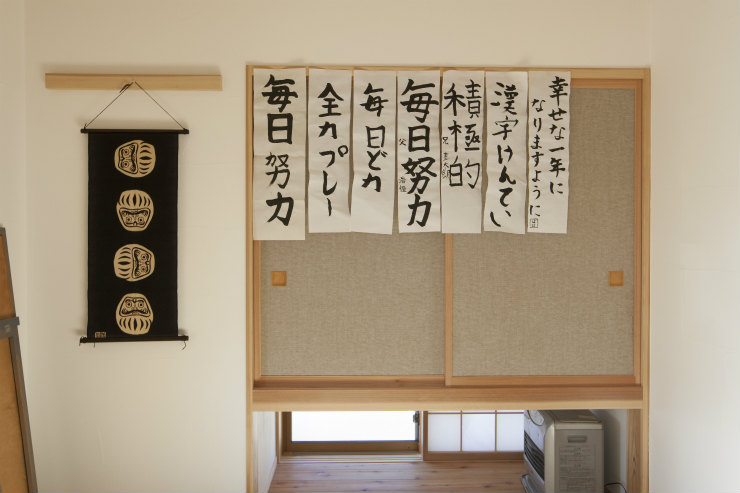 幸せな一年に
なりますように
漢字けんてい
積極的
兄
毎日努力
父
毎日ど力
全力プレー
毎日努力